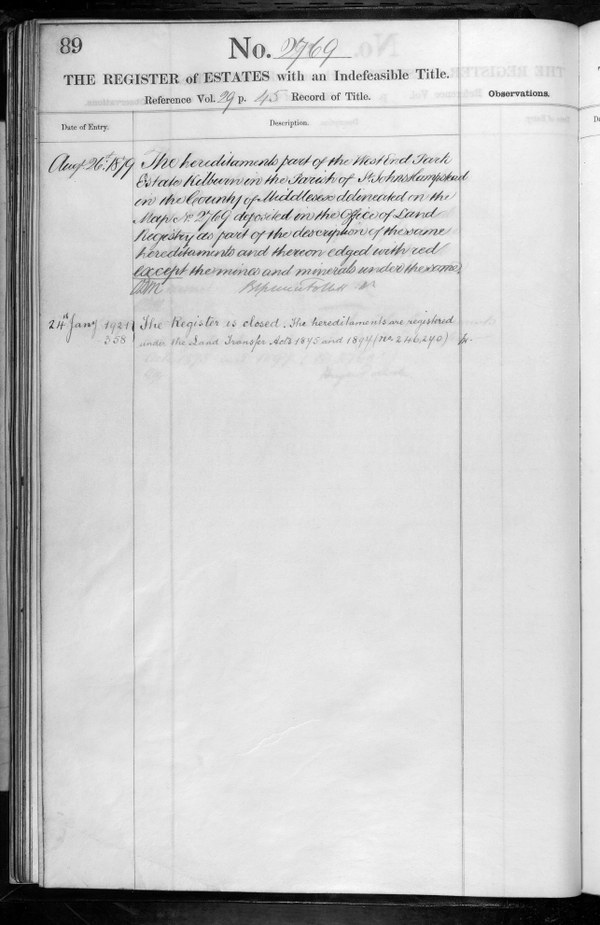 89
No. 2769
THE REGISTER of ESTATES with an Indefeasible Title.
Reference Vol. 29 p. 45 Record of Title.
Observations.
Date of Entry.
Description.
Augt 26th 1879 The hereditaments part of the West End Park
Estate Kilburn in the Parish of St Johns Hampstead
in the County of Middlesex delineated on the
Map No 2769 deposited in the Office of Land
Registry as part of the description of the same
hereditaments and thereon edged with red
except the mines and minerals under the same
24th Jany 1921 The Register is closed. The hereditaments are registered
358 under the Land Transfer Acts 1875 and 1897 (No 246290)